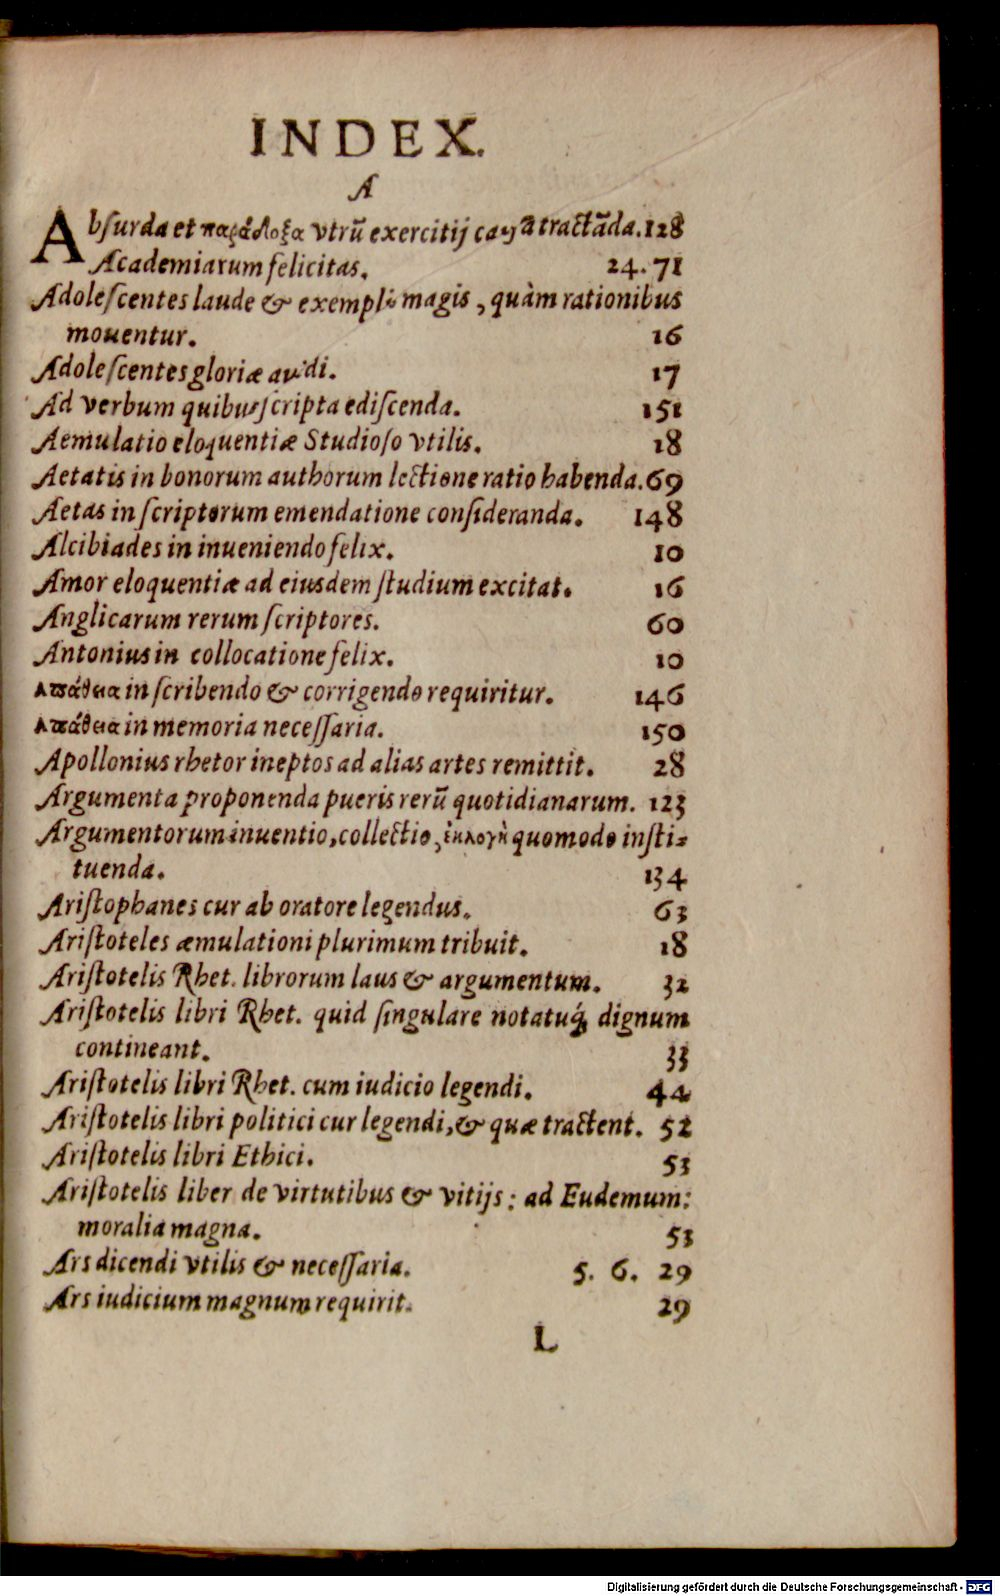 INDEX.
A
Absurda et παράδοξα vtrũ exercitij causã tractãda. 128
Academiarum felicitas. 24. 71
Adolescentes laude & exemplo magis, quàm rationibus
mouentur. 16
Adolescentes gloriæ auidi. 17
Ad verbum quibus scripta ediscenda. 151
Aemulatio eloquentiæ Studioso vtilis. 18
Aetatis in bonorum authorum lectione ratio habenda. 69
Aetas in scriptorum emendatione consideranda. 148
Alcibiades in inueniendo felix. 10
Amor eloquentiæ ad eiusdem studium excitat. 16
Anglicarum rerum scriptores. 60
Antonius in collocatione felix. 10
Απάθεια in scribendo & corrigendo requiritur. 146
Απάθεια in memoria necessaria. 150
Apollonius rhetor ineptos ad alias artes remittit. 28
Argumenta proponenda pueris rerũ quotidianarum. 123
Argumentorum inuentio, collectio, ἐκλογὴ quomodo insti-
tuenda. 134
Aristophanes cur ab oratore legendus. 63
Aristoteles æmulationi plurimum tribuit. 18
Aristotelis Rhet. librorum laus & argumentum. 32
Aristotelis libri Rhet. quid singulare notatuq́; dignum
contineant. 33
Aristotelis libri Rhet. cum iudicio legendi. 44
Aristotelis libri politici cur legendi, & quæ tractent. 52
Aristotelis libri Ethici. 53
Aristotelis liber de virtutibus & vitijs: ad Eudemum:
moralia magna. 53
Ars dicendi vtilis & necessaria. 5. 6. 29
Ars iudicium magnum requirit. 29
L
Digitalisierung gefördert durch die Deutsche Forschungsgemeinschaft - DFG